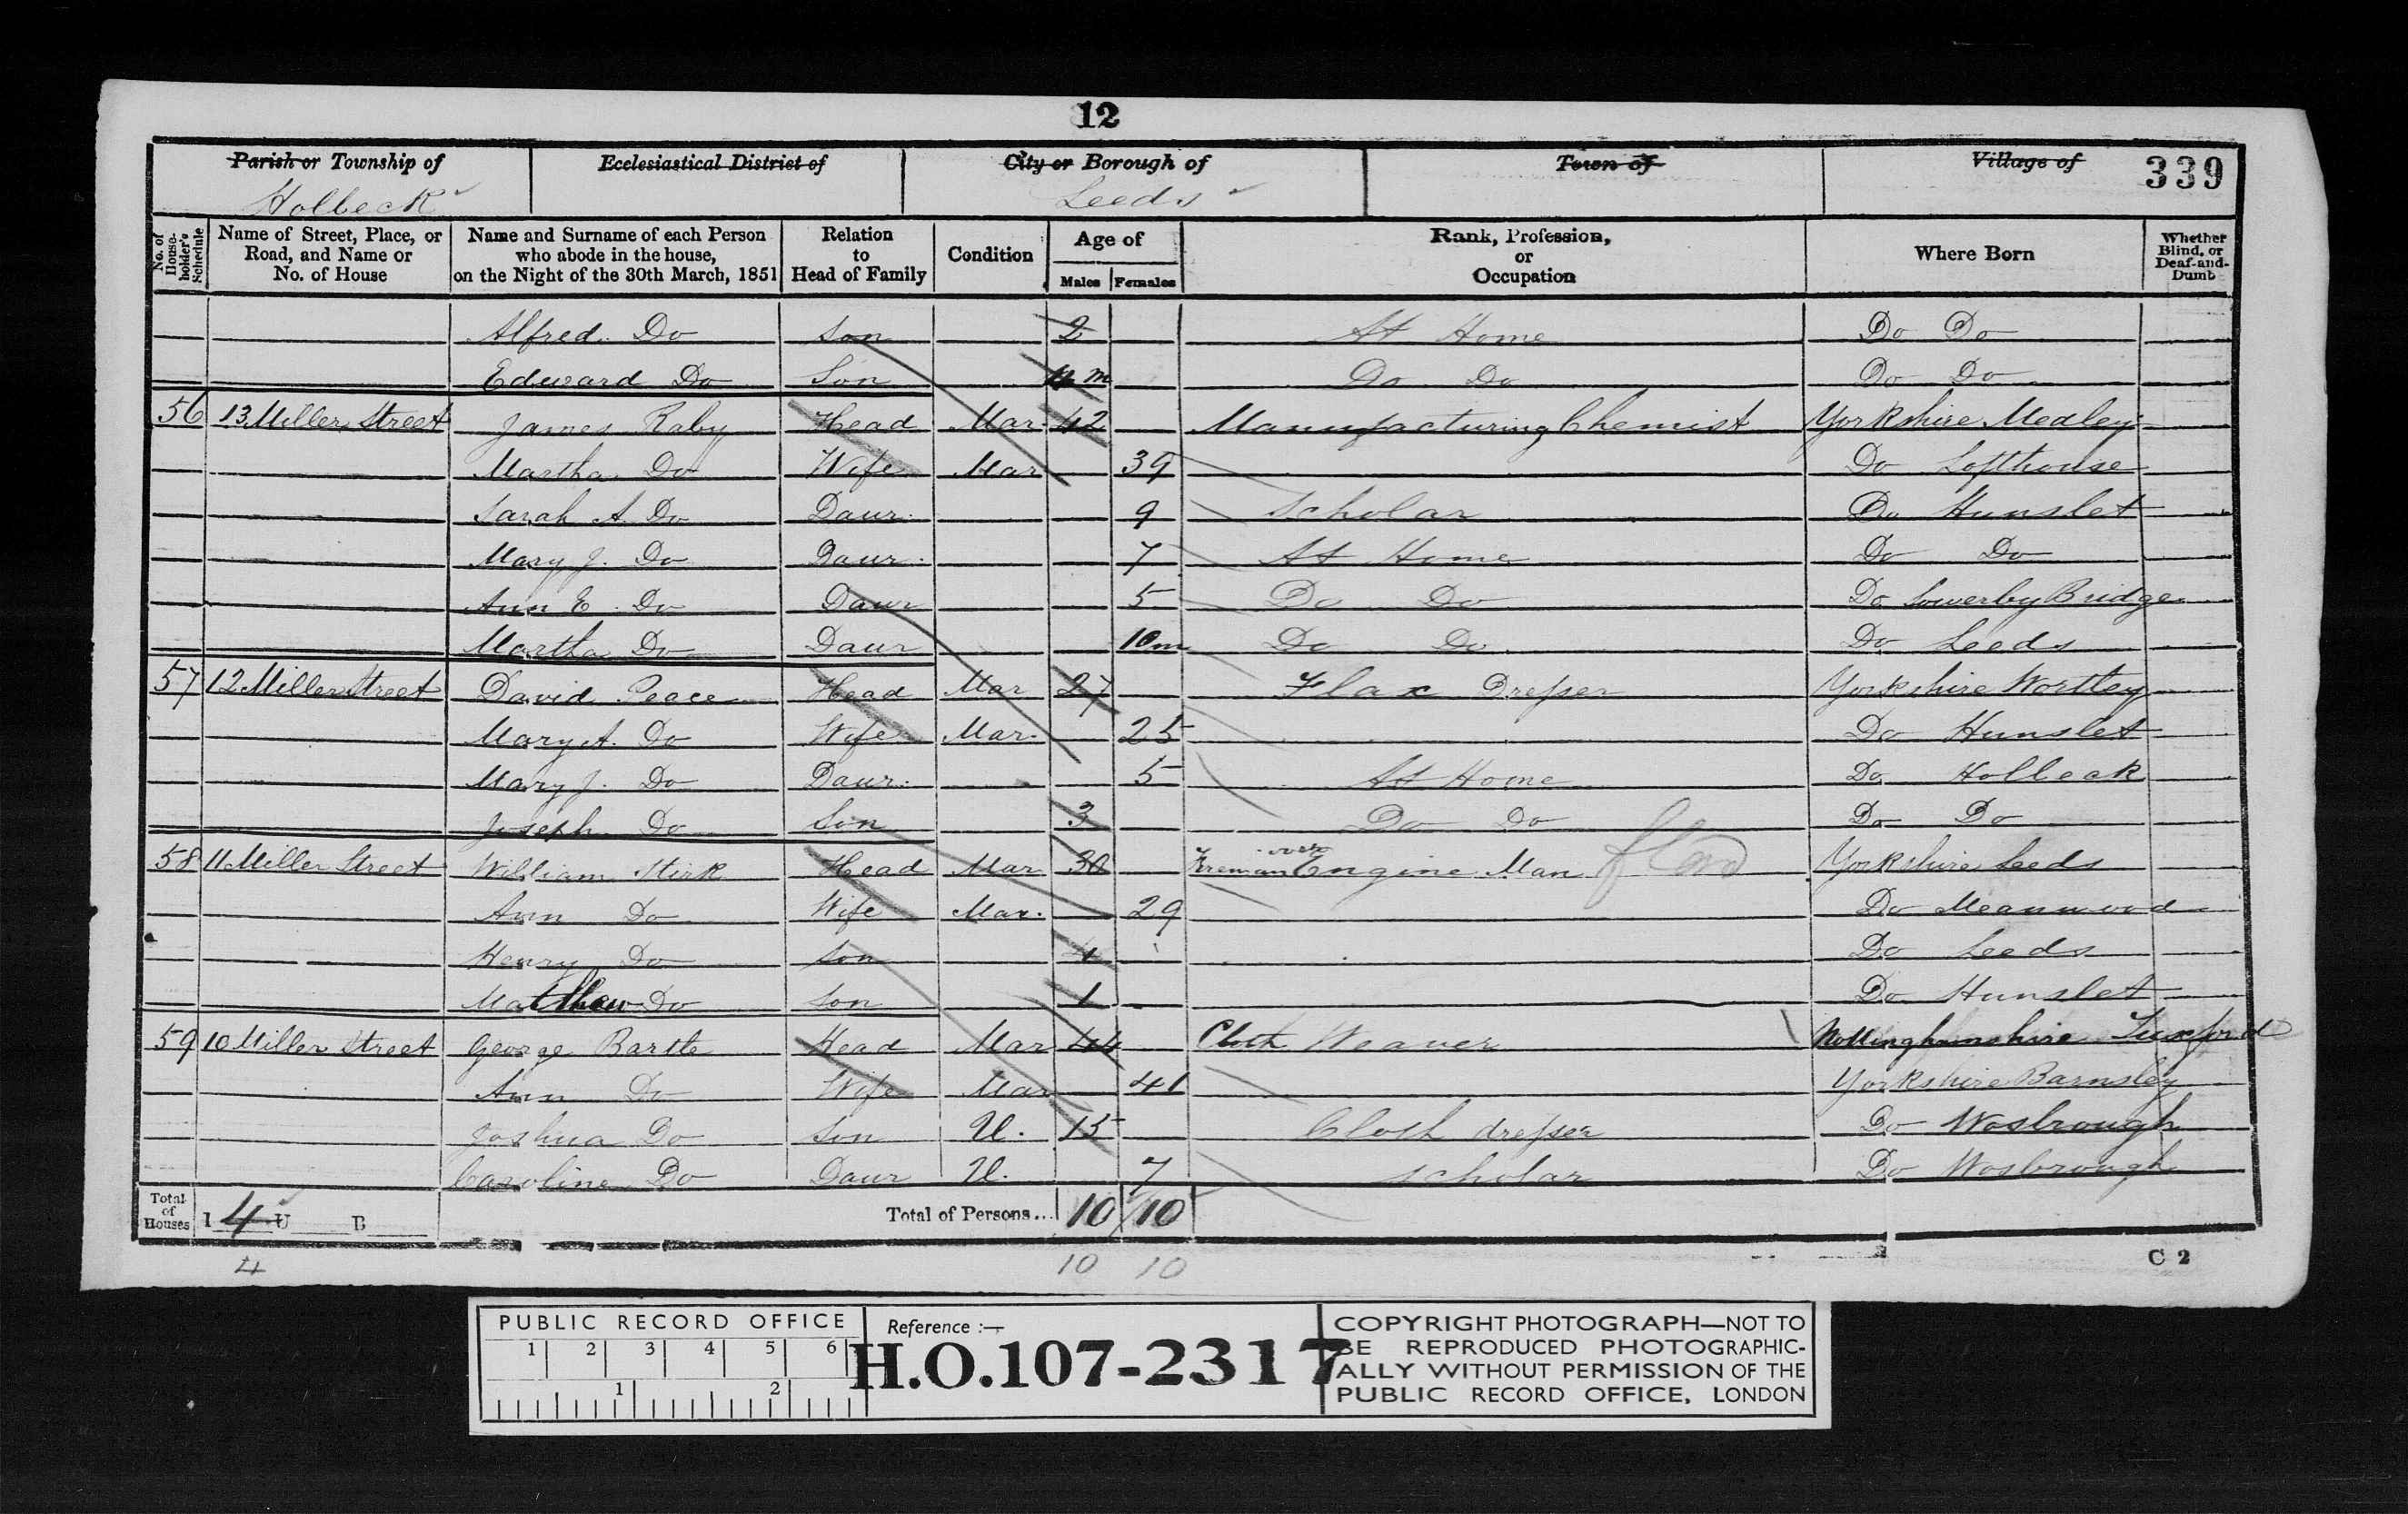 12
Parish or Township of Ecclesiastical District of City or Borough of Town of Village of 339
Holbeck Leeds
No. of House-holder's Schedule Name of Street, Place, or Road, and Name or No. of House Name and Surname of each Person who abode in the house, on the Night of the 30th March, 1851 Relation to Head of Family Condition Age of Males Females Rank, Profession, or Occupation Where Born Whether Blind, or Deaf-and-Dumb
Alfred Do Son 2 At Home Do Do
Edward Do Son 4 m Do Do Do Do
56 13 Miller Street James Raby Head Mar 42 Manufacturing Chemist Yorkshire Medley
Martha Do Wife Mar 39 Do Lofthouse
Sarah A. Do Daur 9 Scholar Do Hunslet
Mary J. Do Daur 7 At Home Do Do
Ann E. Do Daur 5 Do Do Do Sowerby Bridge
Martha Do Daur 10m Do Do Do Leeds
57 12 Miller Street David Peace Head Mar 27 Flax Dresser Yorkshire Wortley
Mary A. Do Wife Mar. 25 Do Hunslet
Mary J. Do Daur. 5 At Home Do Holbeck
Joseph Do Son 3 Do Do Do Do
58 11 Miller Street William Stirk Head Mar 30 Engine Man Yorkshire Leeds
Ann Do Wife Mar. 29 Do Meanwood
Henry Do Son 4 Do Leeds
Matthew Do Son 1 Do Hunslet
59 10 Miller Street George Bartle Head Mar 44 Cloth Weaver Nottinghamshire Tuxford
Ann Do Wife Mar 41 Yorkshire Barnsley
Joshua Do Son U. 15 Cloth dresser Do Wosbrough
Caroline Do Daur U. 7 scholar Do Wosbrough
Total of Houses I 4 U B Total of Persons... 10 10
4 10 10 C 2
PUBLIC RECORD OFFICE
1 2 3 4 5 6
1 2
Reference :—
H.O.107-2317
COPYRIGHT PHOTOGRAPH—NOT TO
BE REPRODUCED PHOTOGRAPHIC-
ALLY WITHOUT PERMISSION OF THE
PUBLIC RECORD OFFICE, LONDON